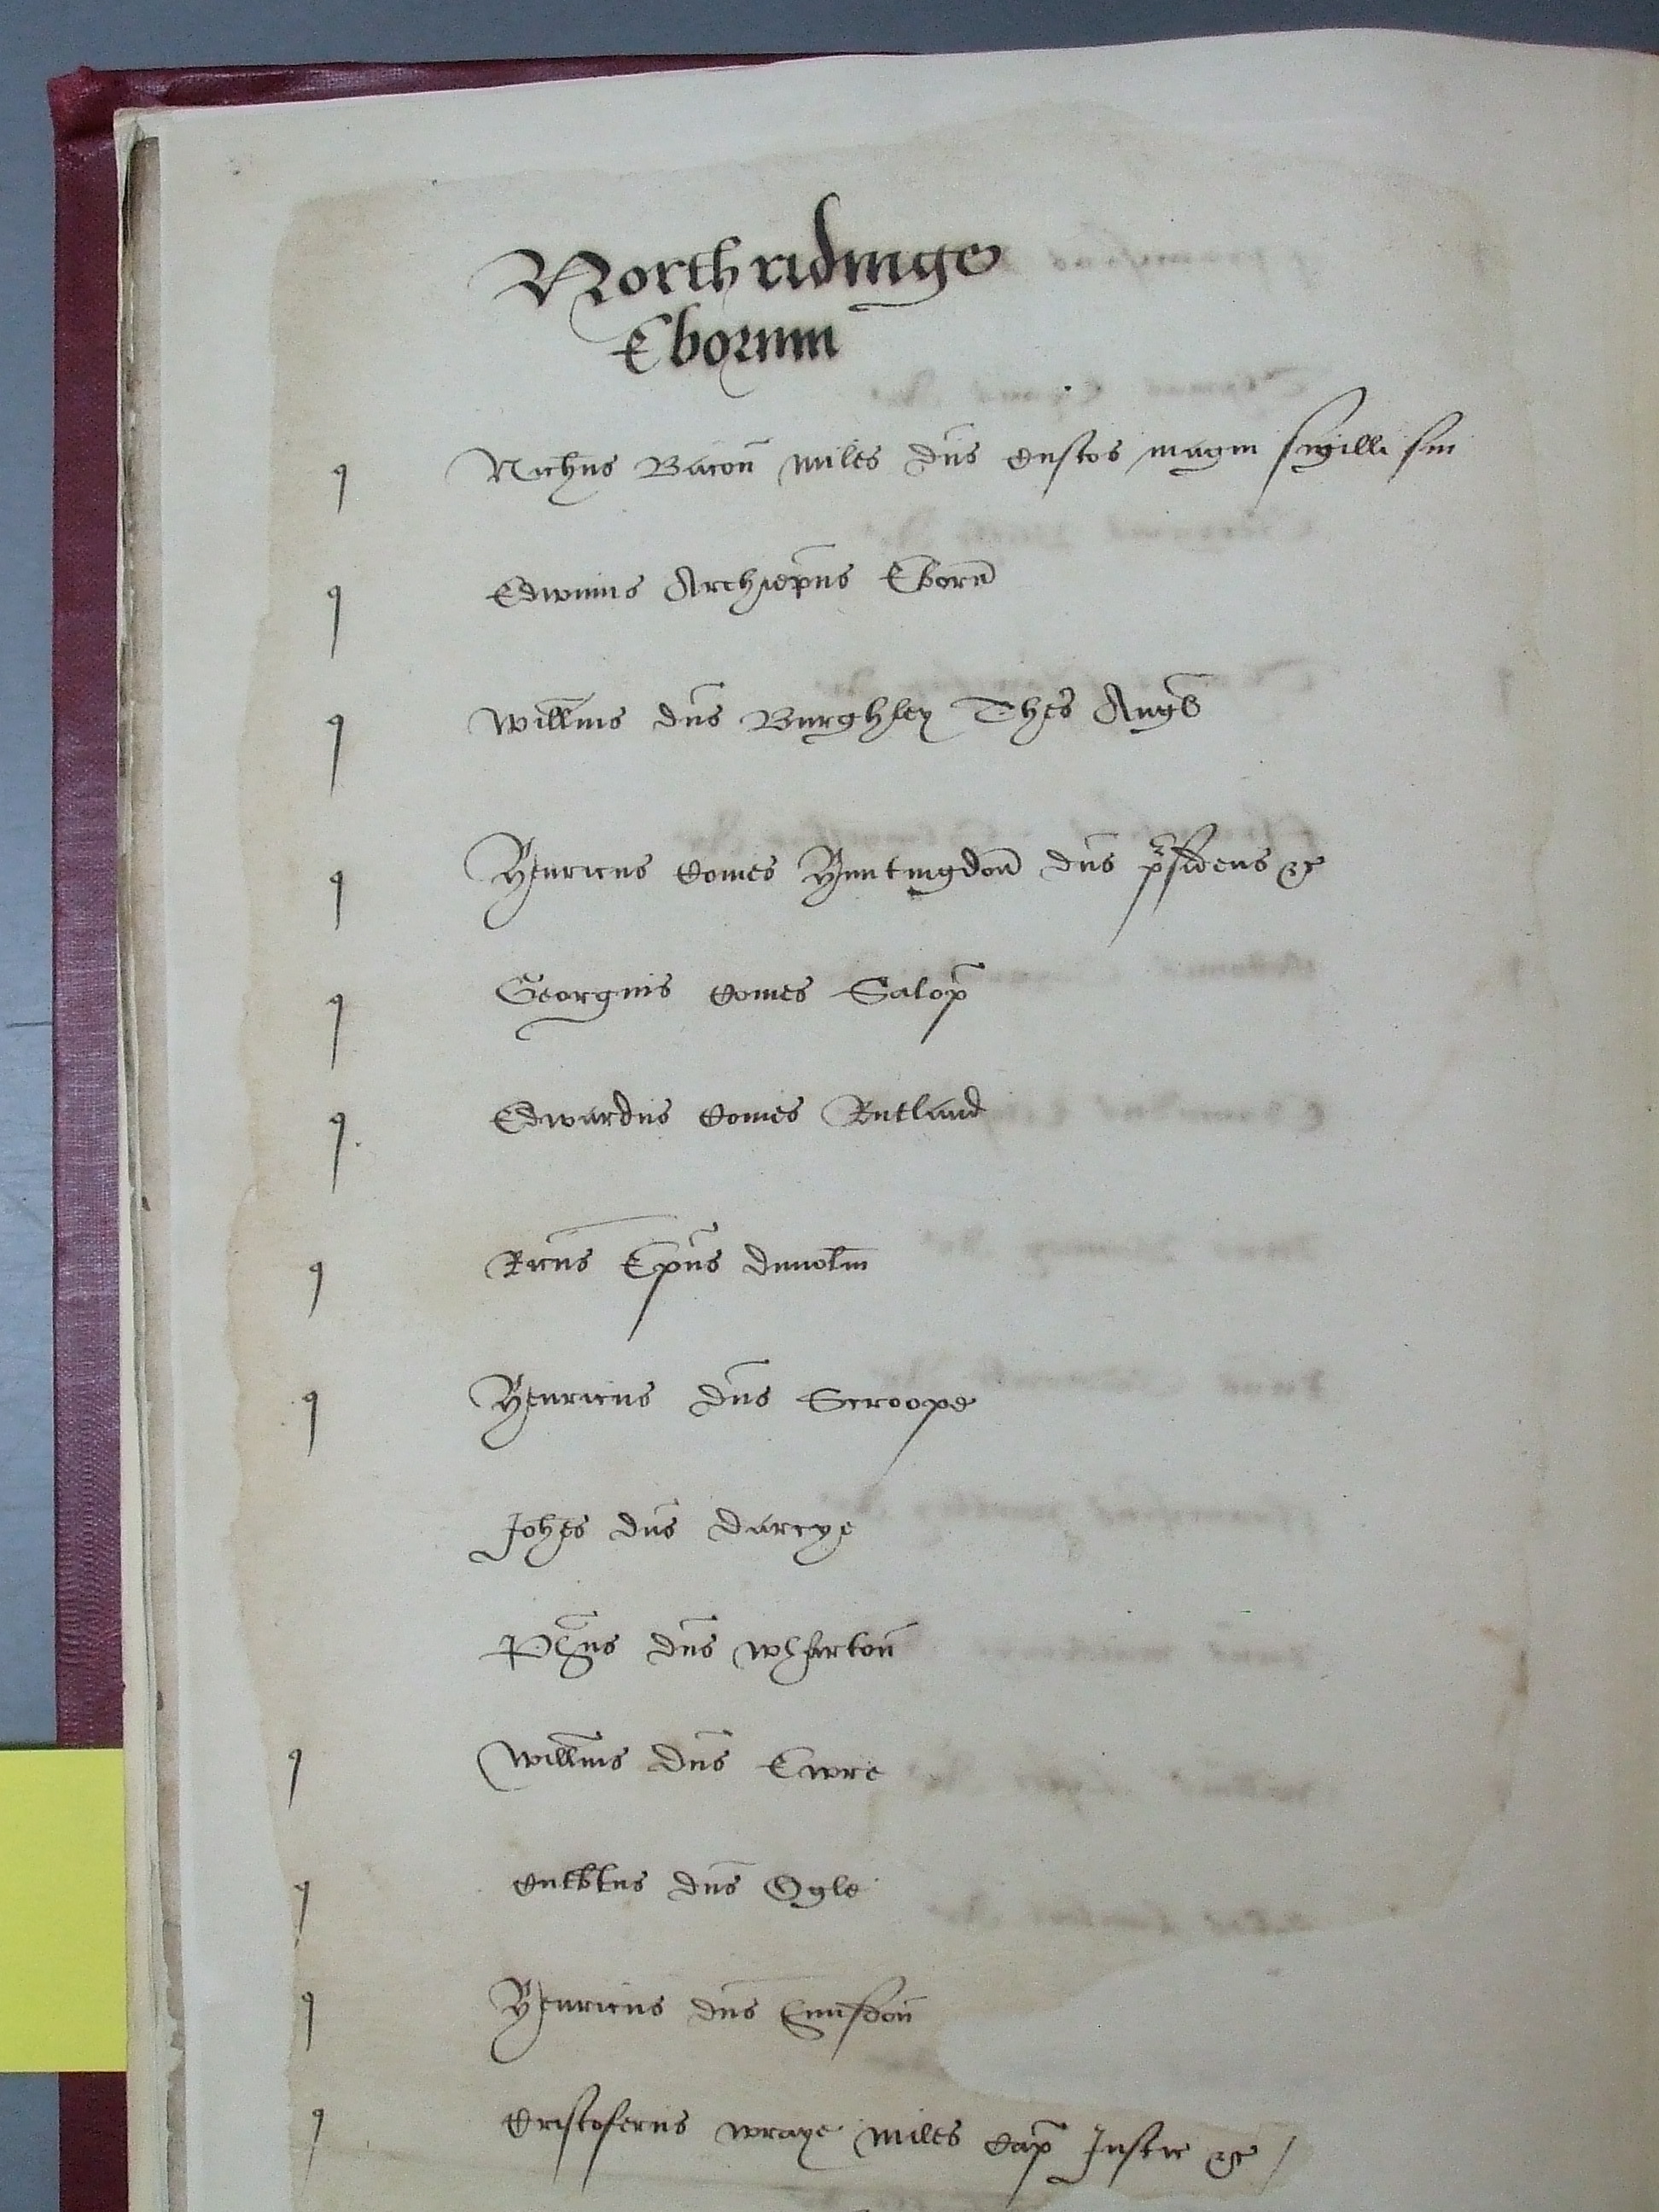 Northridinge
Eborum
q Nichūs Bacon miles dn̄s custos magni sigilli sui
q Edwinus Archiep̄us Eborū
q Willm̄us dn̄s Burghley Thes Angl
q Henricus Comes Huntingdon dn̄s p̄sidens &c
q Georgius Comes Salop
q Edwardus Comes Rutland
q Ric̄us Ep̄us dunolm
q Henricus dn̄s Scroope
Joh̄es dn̄s darcye
Ph̄us dn̄s wharton
q Willm̄us dn̄s Ewre
q Cutbtus dn̄s Ogle
q Henricus dn̄s hunsdon
q Cristoferus wraye miles Cap̄ Justic &c /